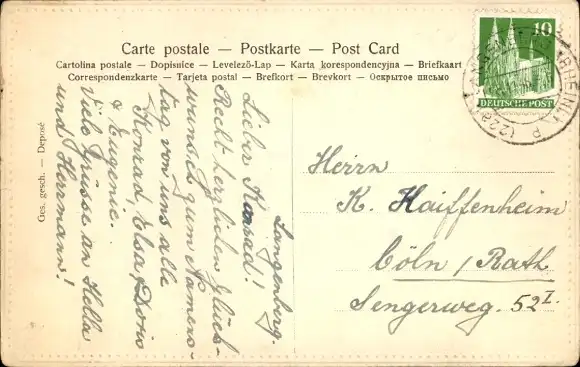 Carte postale — Postkarte — Post Card
Cartolina postale — Dopisnice — Levelező-Lap — Karta korespondencyjna — Briefkaart
Correspondenzkarte — Tarjeta postal — Brefkort — Brevkort — Открытое письмо
Ges. gesch. — Deposé
10
DEUTSCHE POST
(22a)
(RHEINL)
Langenberg.
Lieber Konrad!
Recht herzlichen Glück-
wunsch zum Namens-
tag von uns alle
Konrad, Elsa, Doris
& Eugenie.
Viele Grüsse an Hella
und Herrmann!
Herrn
K. Haiffenheim
Cöln / Rath
Sengerweg. 52 I.